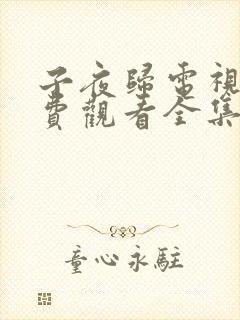 子夜歸電視
費觀看全集
童心永駐